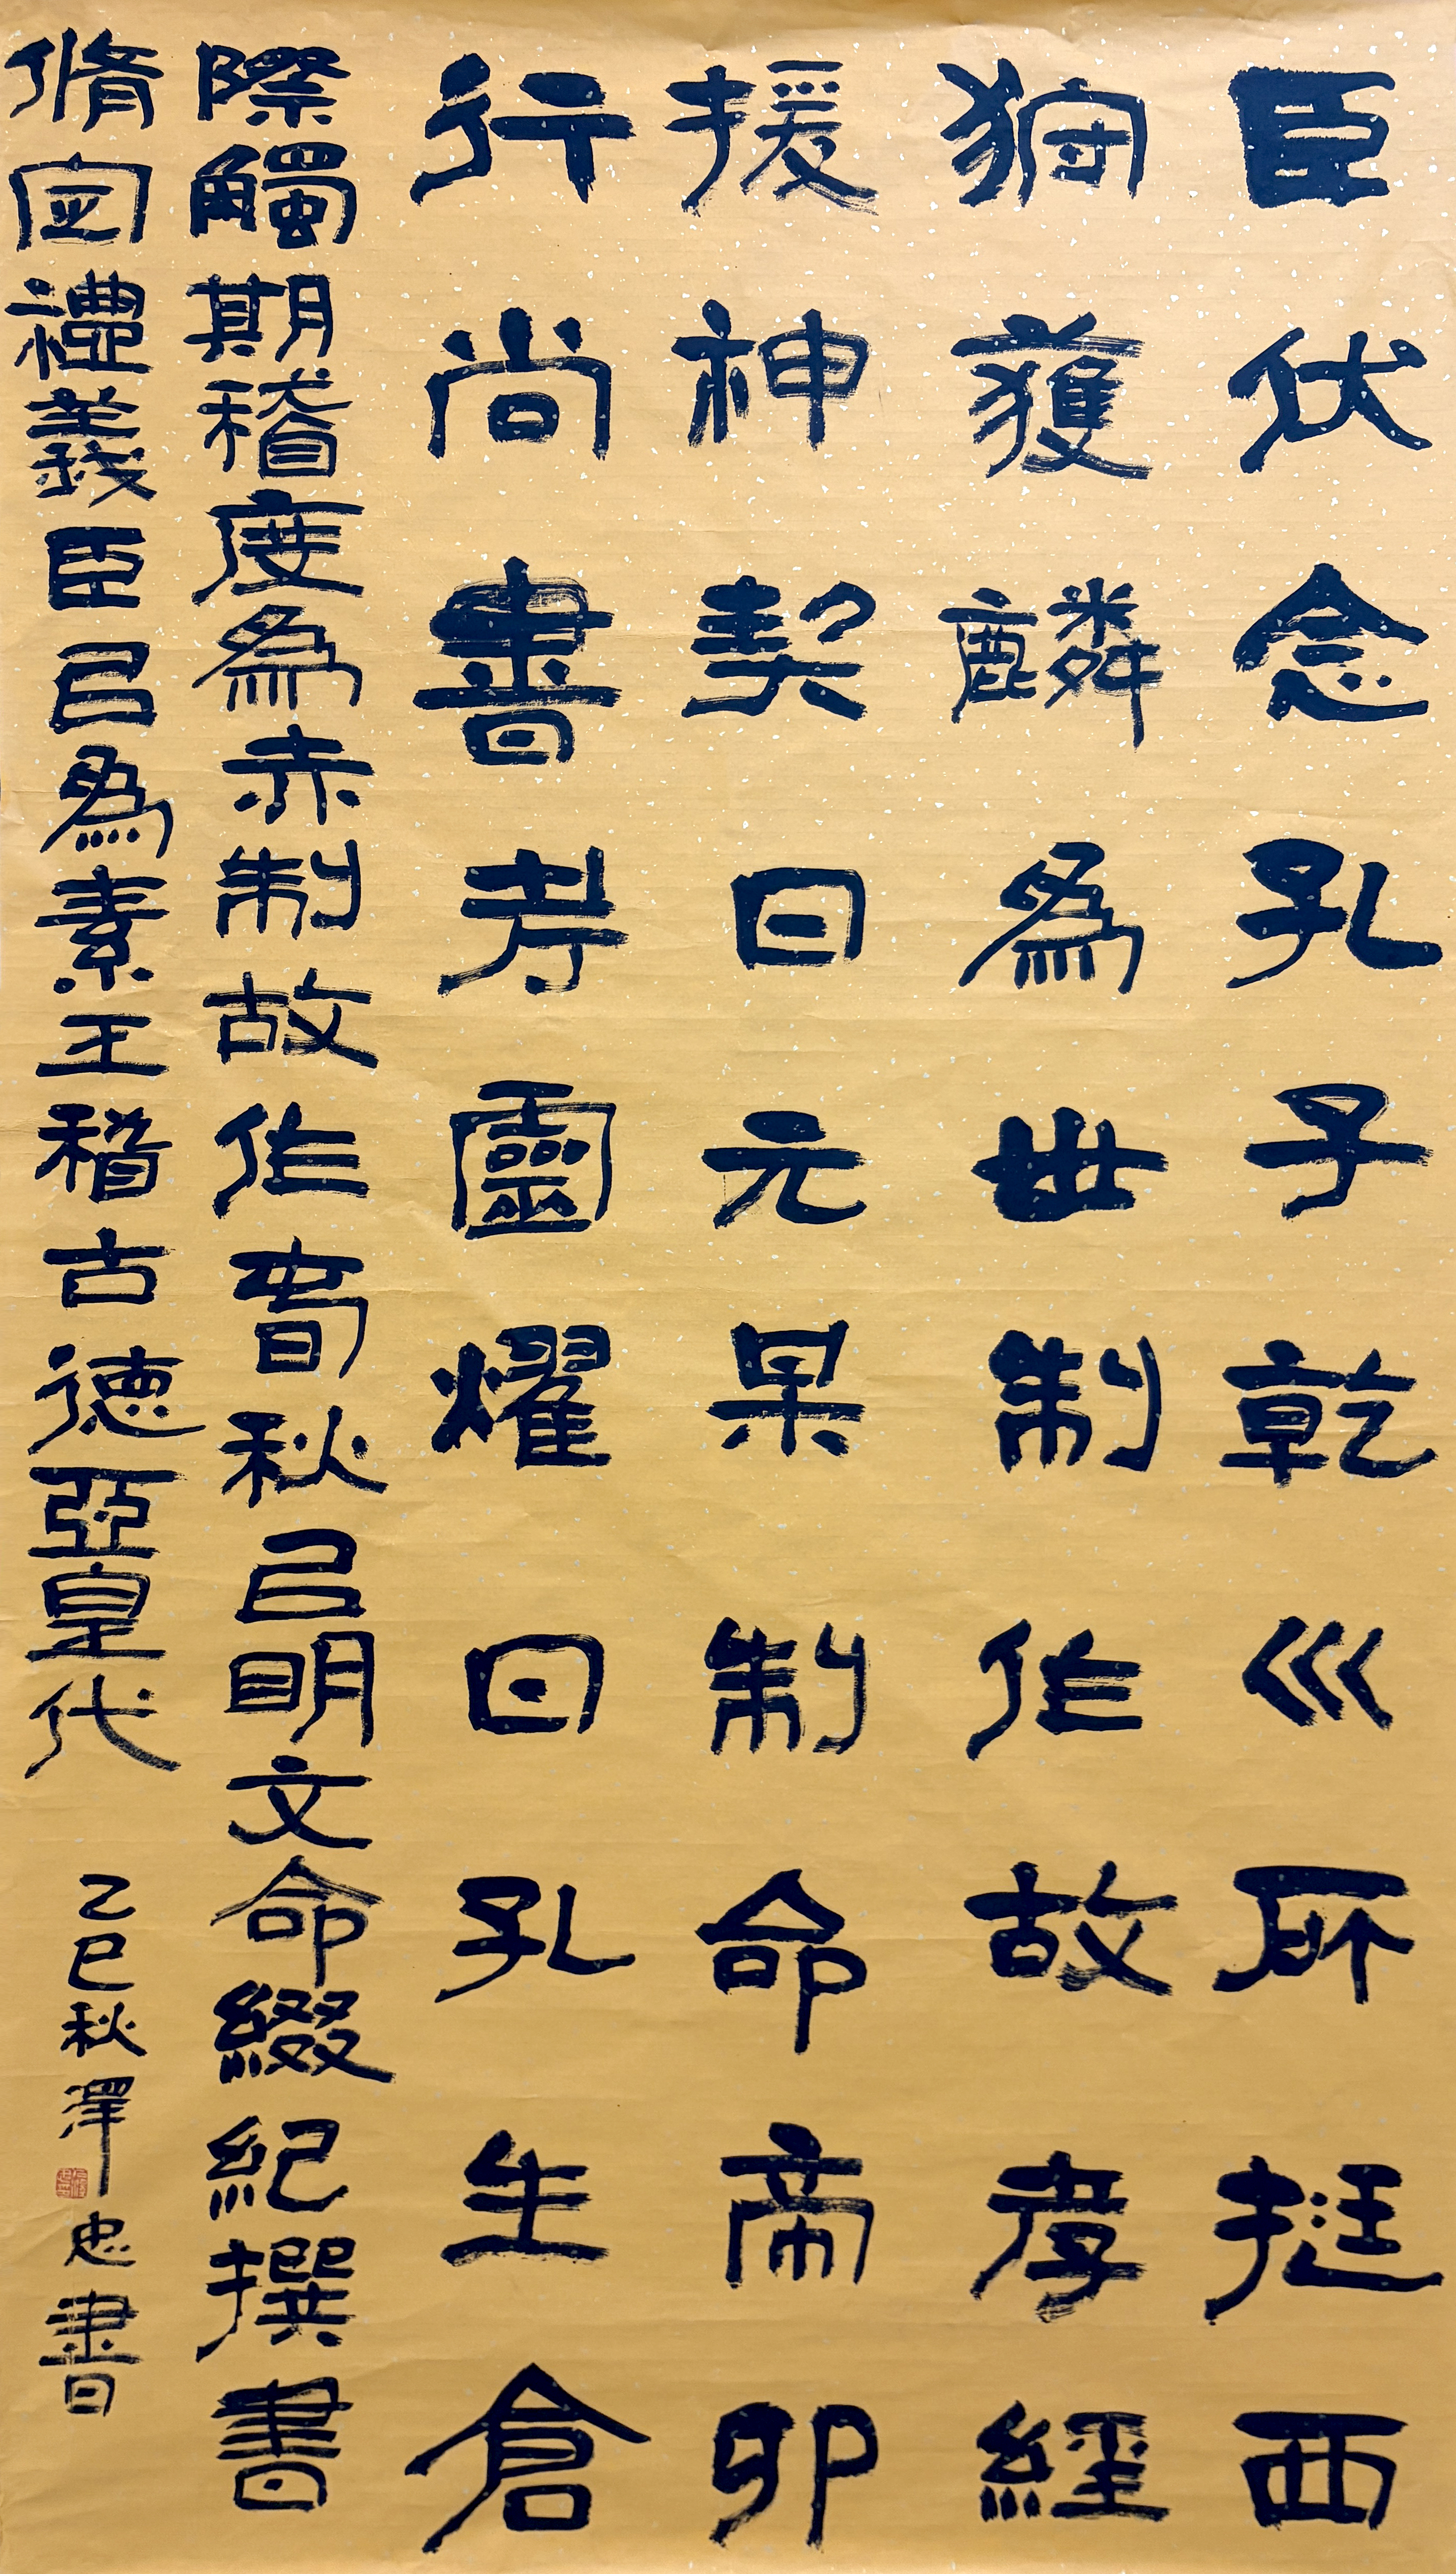 臣伏念孔子乾巛所挺西
狩獲麟爲世制作故孝經
援神契曰元某制命帝卯
行尚書考靈燿曰孔生倉
際觸期稽度爲赤制故作春秋㠯明文命綴紀撰書
脩定禮義臣㠯爲素王稽古德亞皇代
乙巳秋澤忠書